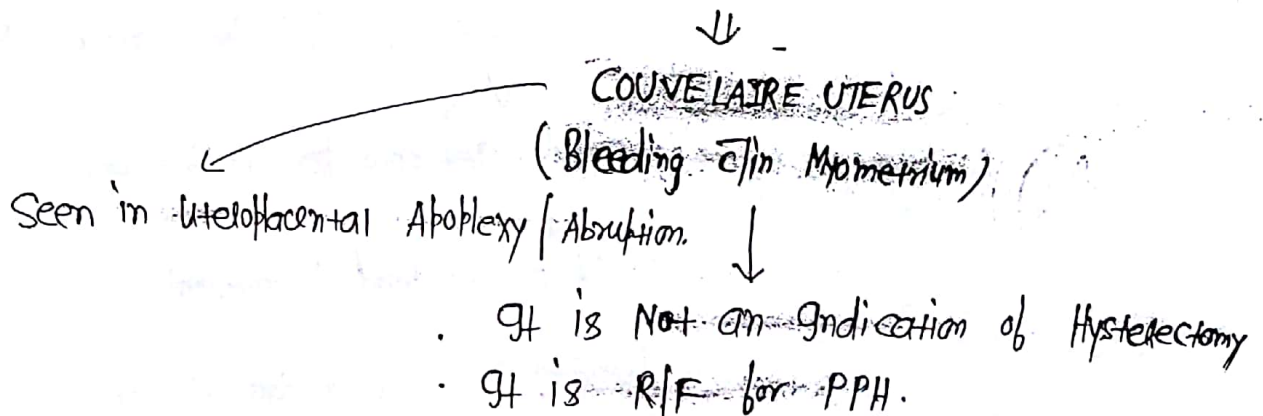 COUVELAIRE UTERUS
(Bleeding c̄/in Myometrium)
Seen in Uteroplacental Apoplexy / Abruption.
. It is Not an Indication of Hysterectomy
. It is R/F for PPH.